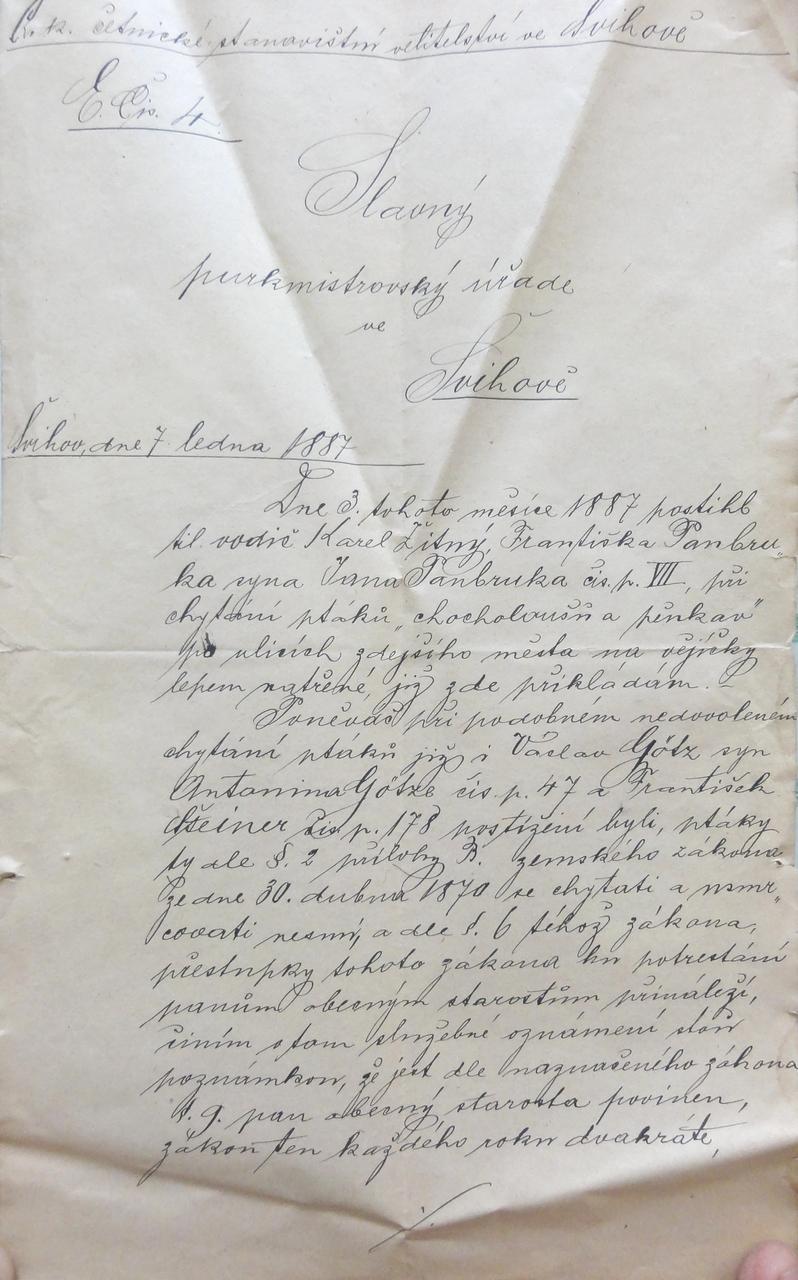 C. k. četnické stanovištní velitelství ve Švihově
E. Čís. 4.
Slavný
purkmistrovský úřade
ve
Švihově
Švihov, dne 7. ledna 1887
Dne 3. tohoto měsíce 1887 postihl
tit. vodič Karel Žitný, Františka Panbru„
ka syna Jana Panbruka čís. p. VII, při
chytání ptáků „chocholoušů a pěnkav"
po ulicích zdejšího města na vějičky
lepem natřené, již zde přikládám. –
Poněvač při podobném nedovoleném
chytání ptáků již i Václav Götz syn
Antonína Götze čís. p. 47 a František
Šteiner čís. p. 178 postiženi byli, ptáky
ty dle §. 2 přílohy B. zemského zákona
ze dne 30. dubna 1870 se chytati a usmr„
covati nesmí, a dle §. 6 téhož zákona,
přestupky tohoto zákona ku potrestání
panům obecným starostům přináleží,
činím o tom služebné oznámení s tou
poznámkou, že jest dle naznačeného zákona
§. 9. pan obecný starosta povinen,
zákon ten každého roku dvakráte,
./.